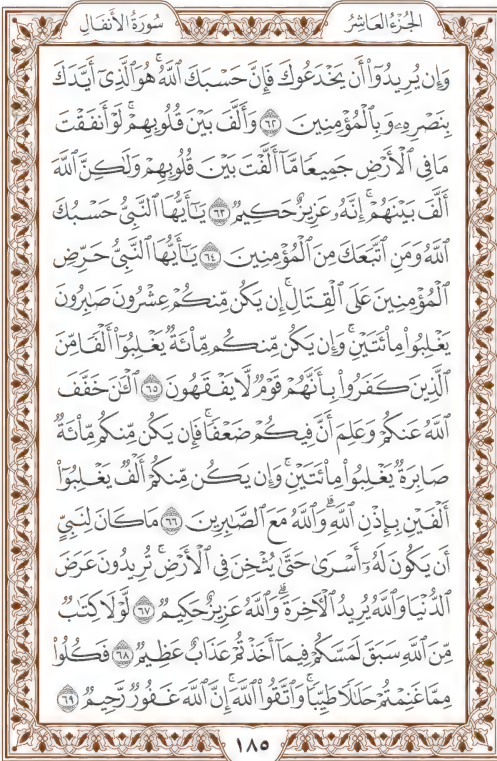 سُورَةُ الأَنفَالِ الجُزْءُ العَاشِرُ
وَإِن يُرِيدُوٓا۟ أَن يَخْدَعُوكَ فَإِنَّ حَسْبَكَ ٱللَّهُ ۚ هُوَ ٱلَّذِىٓ أَيَّدَكَ
بِنَصْرِهِۦ وَبِٱلْمُؤْمِنِينَ ٦٢ وَأَلَّفَ بَيْنَ قُلُوبِهِمْ ۚ لَوْ أَنفَقْتَ
مَا فِى ٱلْأَرْضِ جَمِيعًا مَّآ أَلَّفْتَ بَيْنَ قُلُوبِهِمْ وَلَٰكِنَّ ٱللَّهَ
أَلَّفَ بَيْنَهُمْ ۚ إِنَّهُۥ عَزِيزٌ حَكِيمٌ ٦٣ يَٰٓأَيُّهَا ٱلنَّبِىُّ حَسْبُكَ
ٱللَّهُ وَمَنِ ٱتَّبَعَكَ مِنَ ٱلْمُؤْمِنِينَ ٦٤ يَٰٓأَيُّهَا ٱلنَّبِىُّ حَرِّضِ
ٱلْمُؤْمِنِينَ عَلَى ٱلْقِتَالِ ۚ إِن يَكُن مِّنكُمْ عِشْرُونَ صَٰبِرُونَ
يَغْلِبُوا۟ مِا۟ئَتَيْنِ ۚ وَإِن يَكُن مِّنكُم مِّا۟ئَةٌ يَغْلِبُوٓا۟ أَلْفًا مِّنَ
ٱلَّذِينَ كَفَرُوا۟ بِأَنَّهُمْ قَوْمٌ لَّا يَفْقَهُونَ ٦٥ ٱلْـَٰٔنَ خَفَّفَ
ٱللَّهُ عَنكُمْ وَعَلِمَ أَنَّ فِيكُمْ ضَعْفًا ۚ فَإِن يَكُن مِّنكُم مِّا۟ئَةٌ
صَابِرَةٌ يَغْلِبُوا۟ مِا۟ئَتَيْنِ ۚ وَإِن يَكُن مِّنكُمْ أَلْفٌ يَغْلِبُوٓا۟
أَلْفَيْنِ بِإِذْنِ ٱللَّهِ ۗ وَٱللَّهُ مَعَ ٱلصَّٰبِرِينَ ٦٦ مَا كَانَ لِنَبِىٍّ
أَن يَكُونَ لَهُۥٓ أَسْرَىٰ حَتَّىٰ يُثْخِنَ فِى ٱلْأَرْضِ ۚ تُرِيدُونَ عَرَضَ
ٱلدُّنْيَا وَٱللَّهُ يُرِيدُ ٱلْـَٔاخِرَةَ ۗ وَٱللَّهُ عَزِيزٌ حَكِيمٌ ٦٧ لَّوْلَا كِتَٰبٌ
مِّنَ ٱللَّهِ سَبَقَ لَمَسَّكُمْ فِيمَآ أَخَذْتُمْ عَذَابٌ عَظِيمٌ ٦٨ فَكُلُوا۟
مِمَّا غَنِمْتُمْ حَلَٰلًا طَيِّبًا ۚ وَٱتَّقُوا۟ ٱللَّهَ ۚ إِنَّ ٱللَّهَ غَفُورٌ رَّحِيمٌ ٦٩
١٨٥